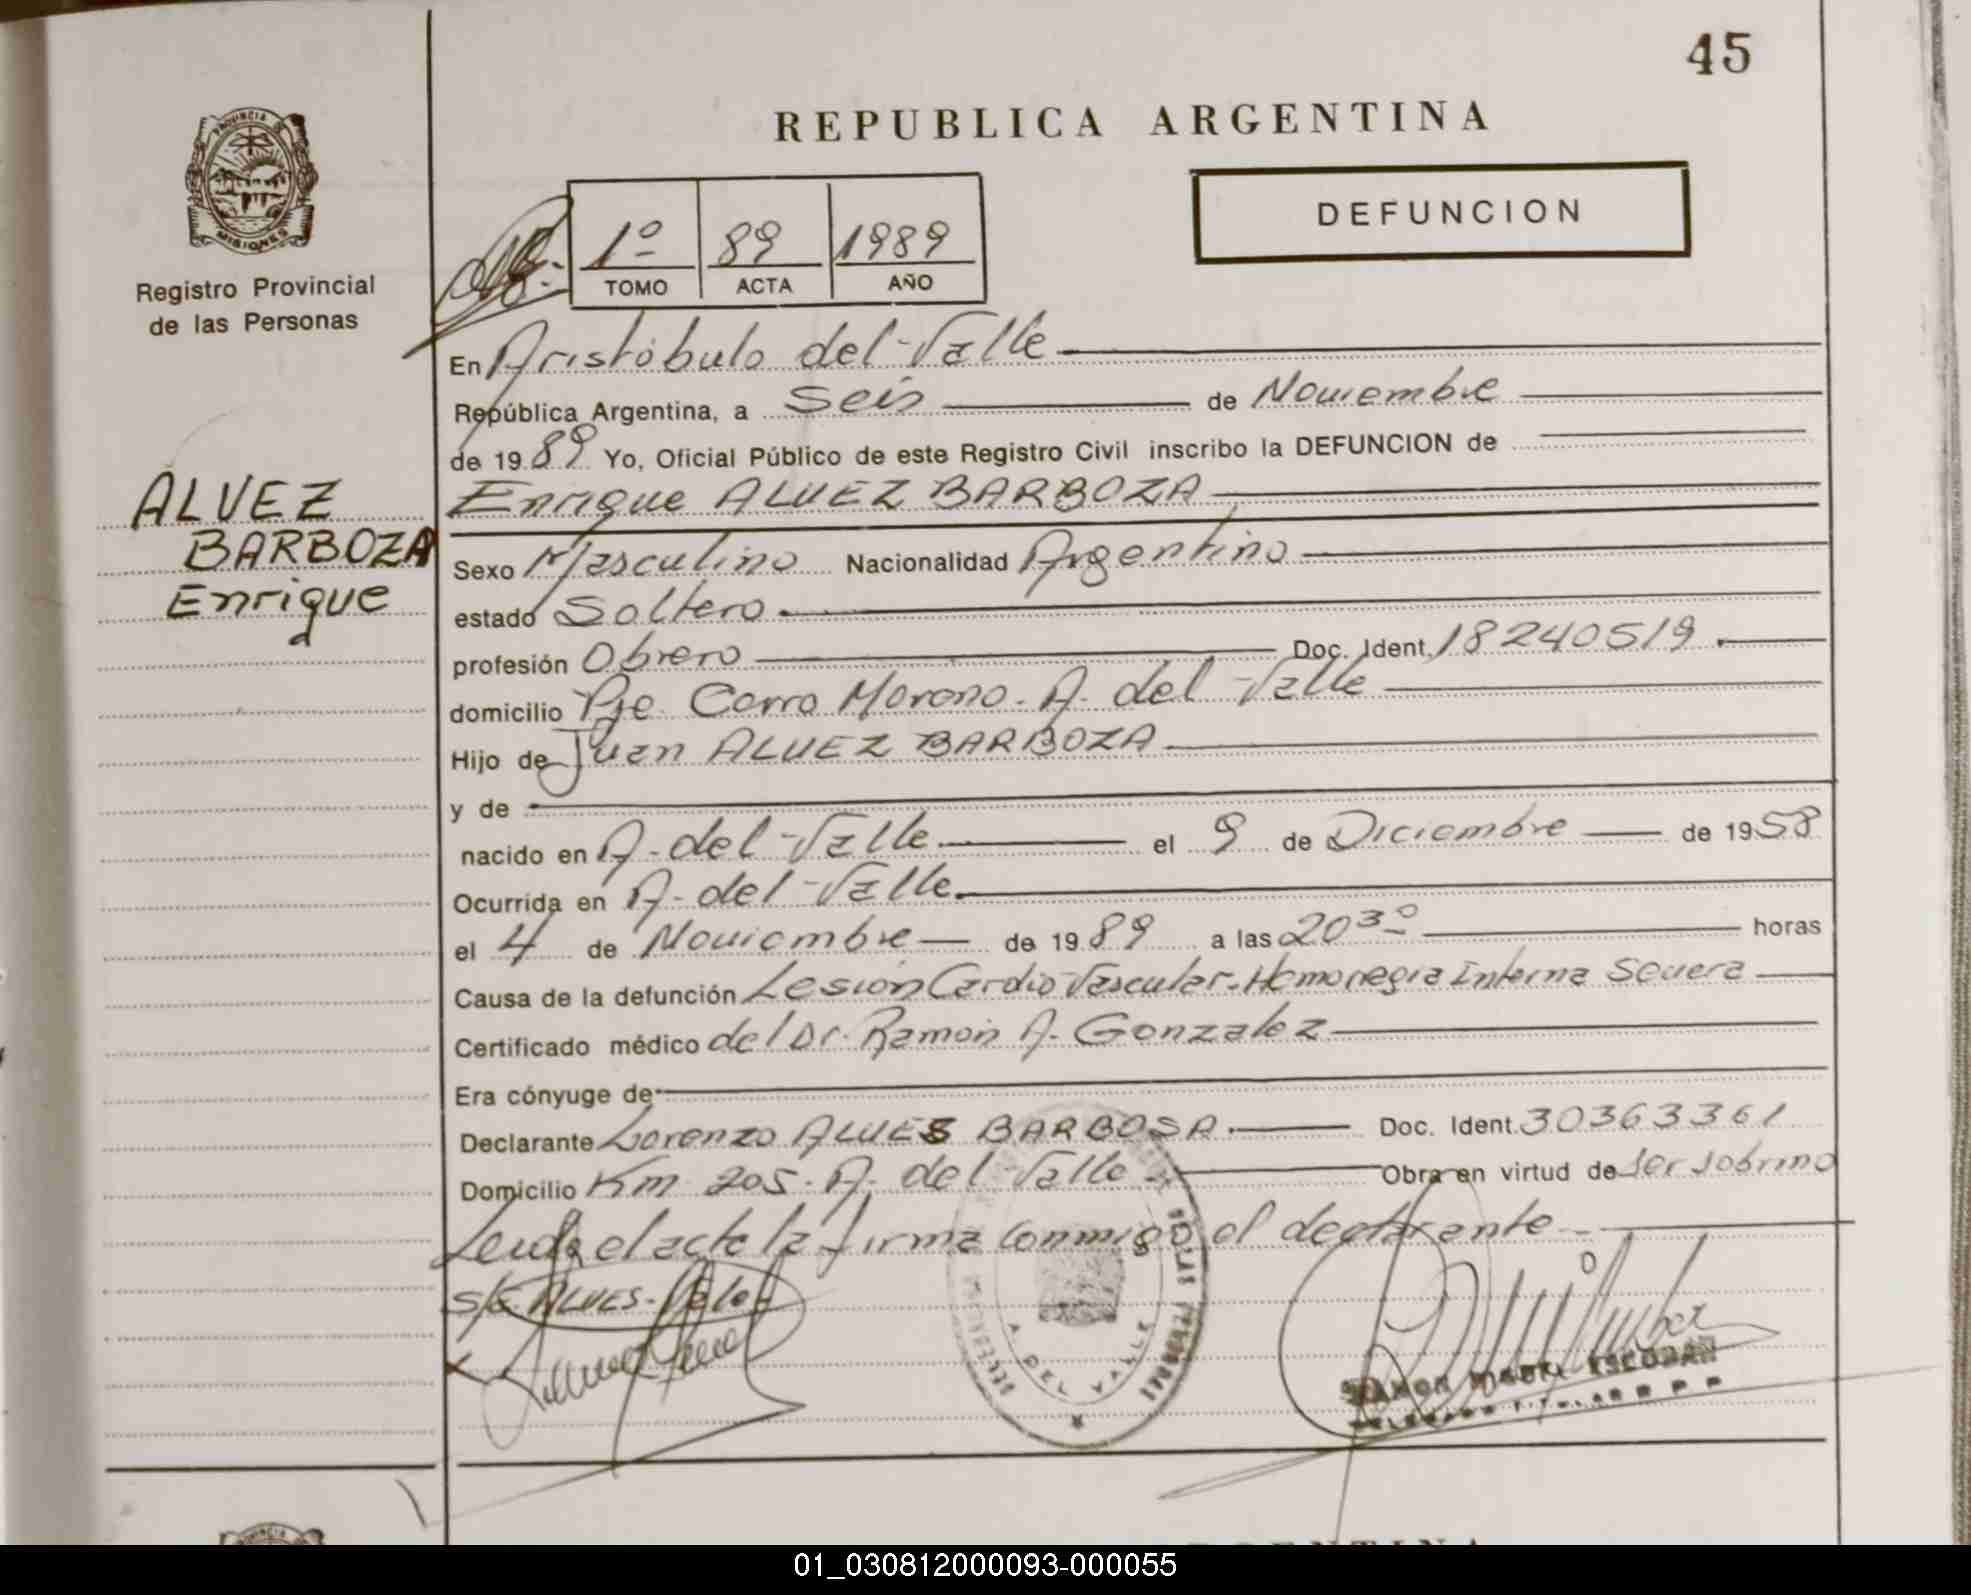 45
REPUBLICA ARGENTINA
PROVINCIA DE
MISIONES
Registro Provincial
de las Personas
1º 89 1989
TOMO ACTA AÑO
DEFUNCION
En Aristóbulo del Valle
República Argentina, a Seis de Noviembre
de 1989 Yo, Oficial Público de este Registro Civil inscribo la DEFUNCION de
ALVEZ
BARBOZA
Enrique
Enrique ALVEZ BARBOZA
Sexo Masculino Nacionalidad Argentino
estado Soltero
profesión Obrero Doc. Ident. 18240519.
domicilio Pje. Cerro Moreno. A. del Valle
Hijo de Juan ALVEZ BARBOZA
y de
nacido en A. del Valle el 9 de Diciembre de 1958
Ocurrida en A. del Valle.
el 4 de Noviembre de 1989 a las 20 30 horas
Causa de la defunción Lesión Cardio Vascular. Hemoregia Interna Severa
Certificado médico del Dr. Ramón A. Gonzalez
Era cónyuge de
Declarante Lorenzo ALVES BARBOSA. Doc. Ident. 30363361
Domicilio Km 205. A. del Valle Obra en virtud de ser sobrino
Leida el acta la firma conmigo el declarante
S/E ALVES. Vale
A. DEL VALLE
RAMON MIGUEL ESCOBAR
DELEGADO TITULAR R P P
01_030812000093-000055